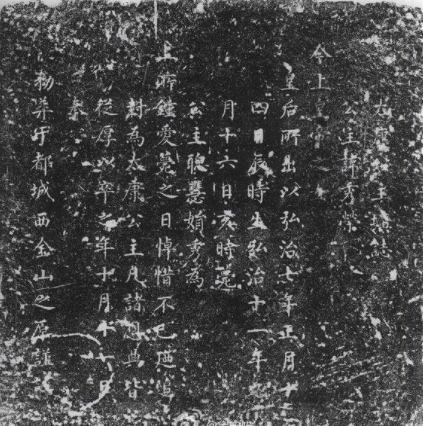 康公主壙誌
公主諱秀榮
今上皇帝之
皇后所出以弘治七年正月十
四日辰時生弘治十一年九
月十六日亥時薨
公主聰慧娟秀為
上所鍾愛薨之日悼惜不已廼追
封為太康公主凡諸恩典皆
從厚以卒之年十月日
奉
勑葬于都城西金山之原謹